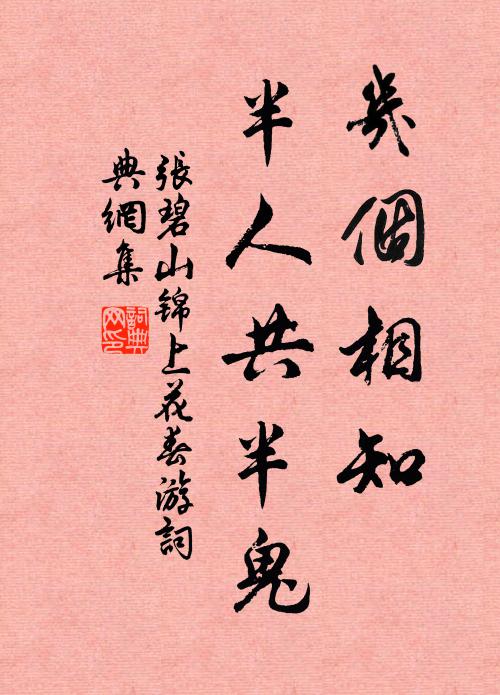 幾個相知
半人共半鬼
張碧山錦上花春游詞
典網集
詞典
网印